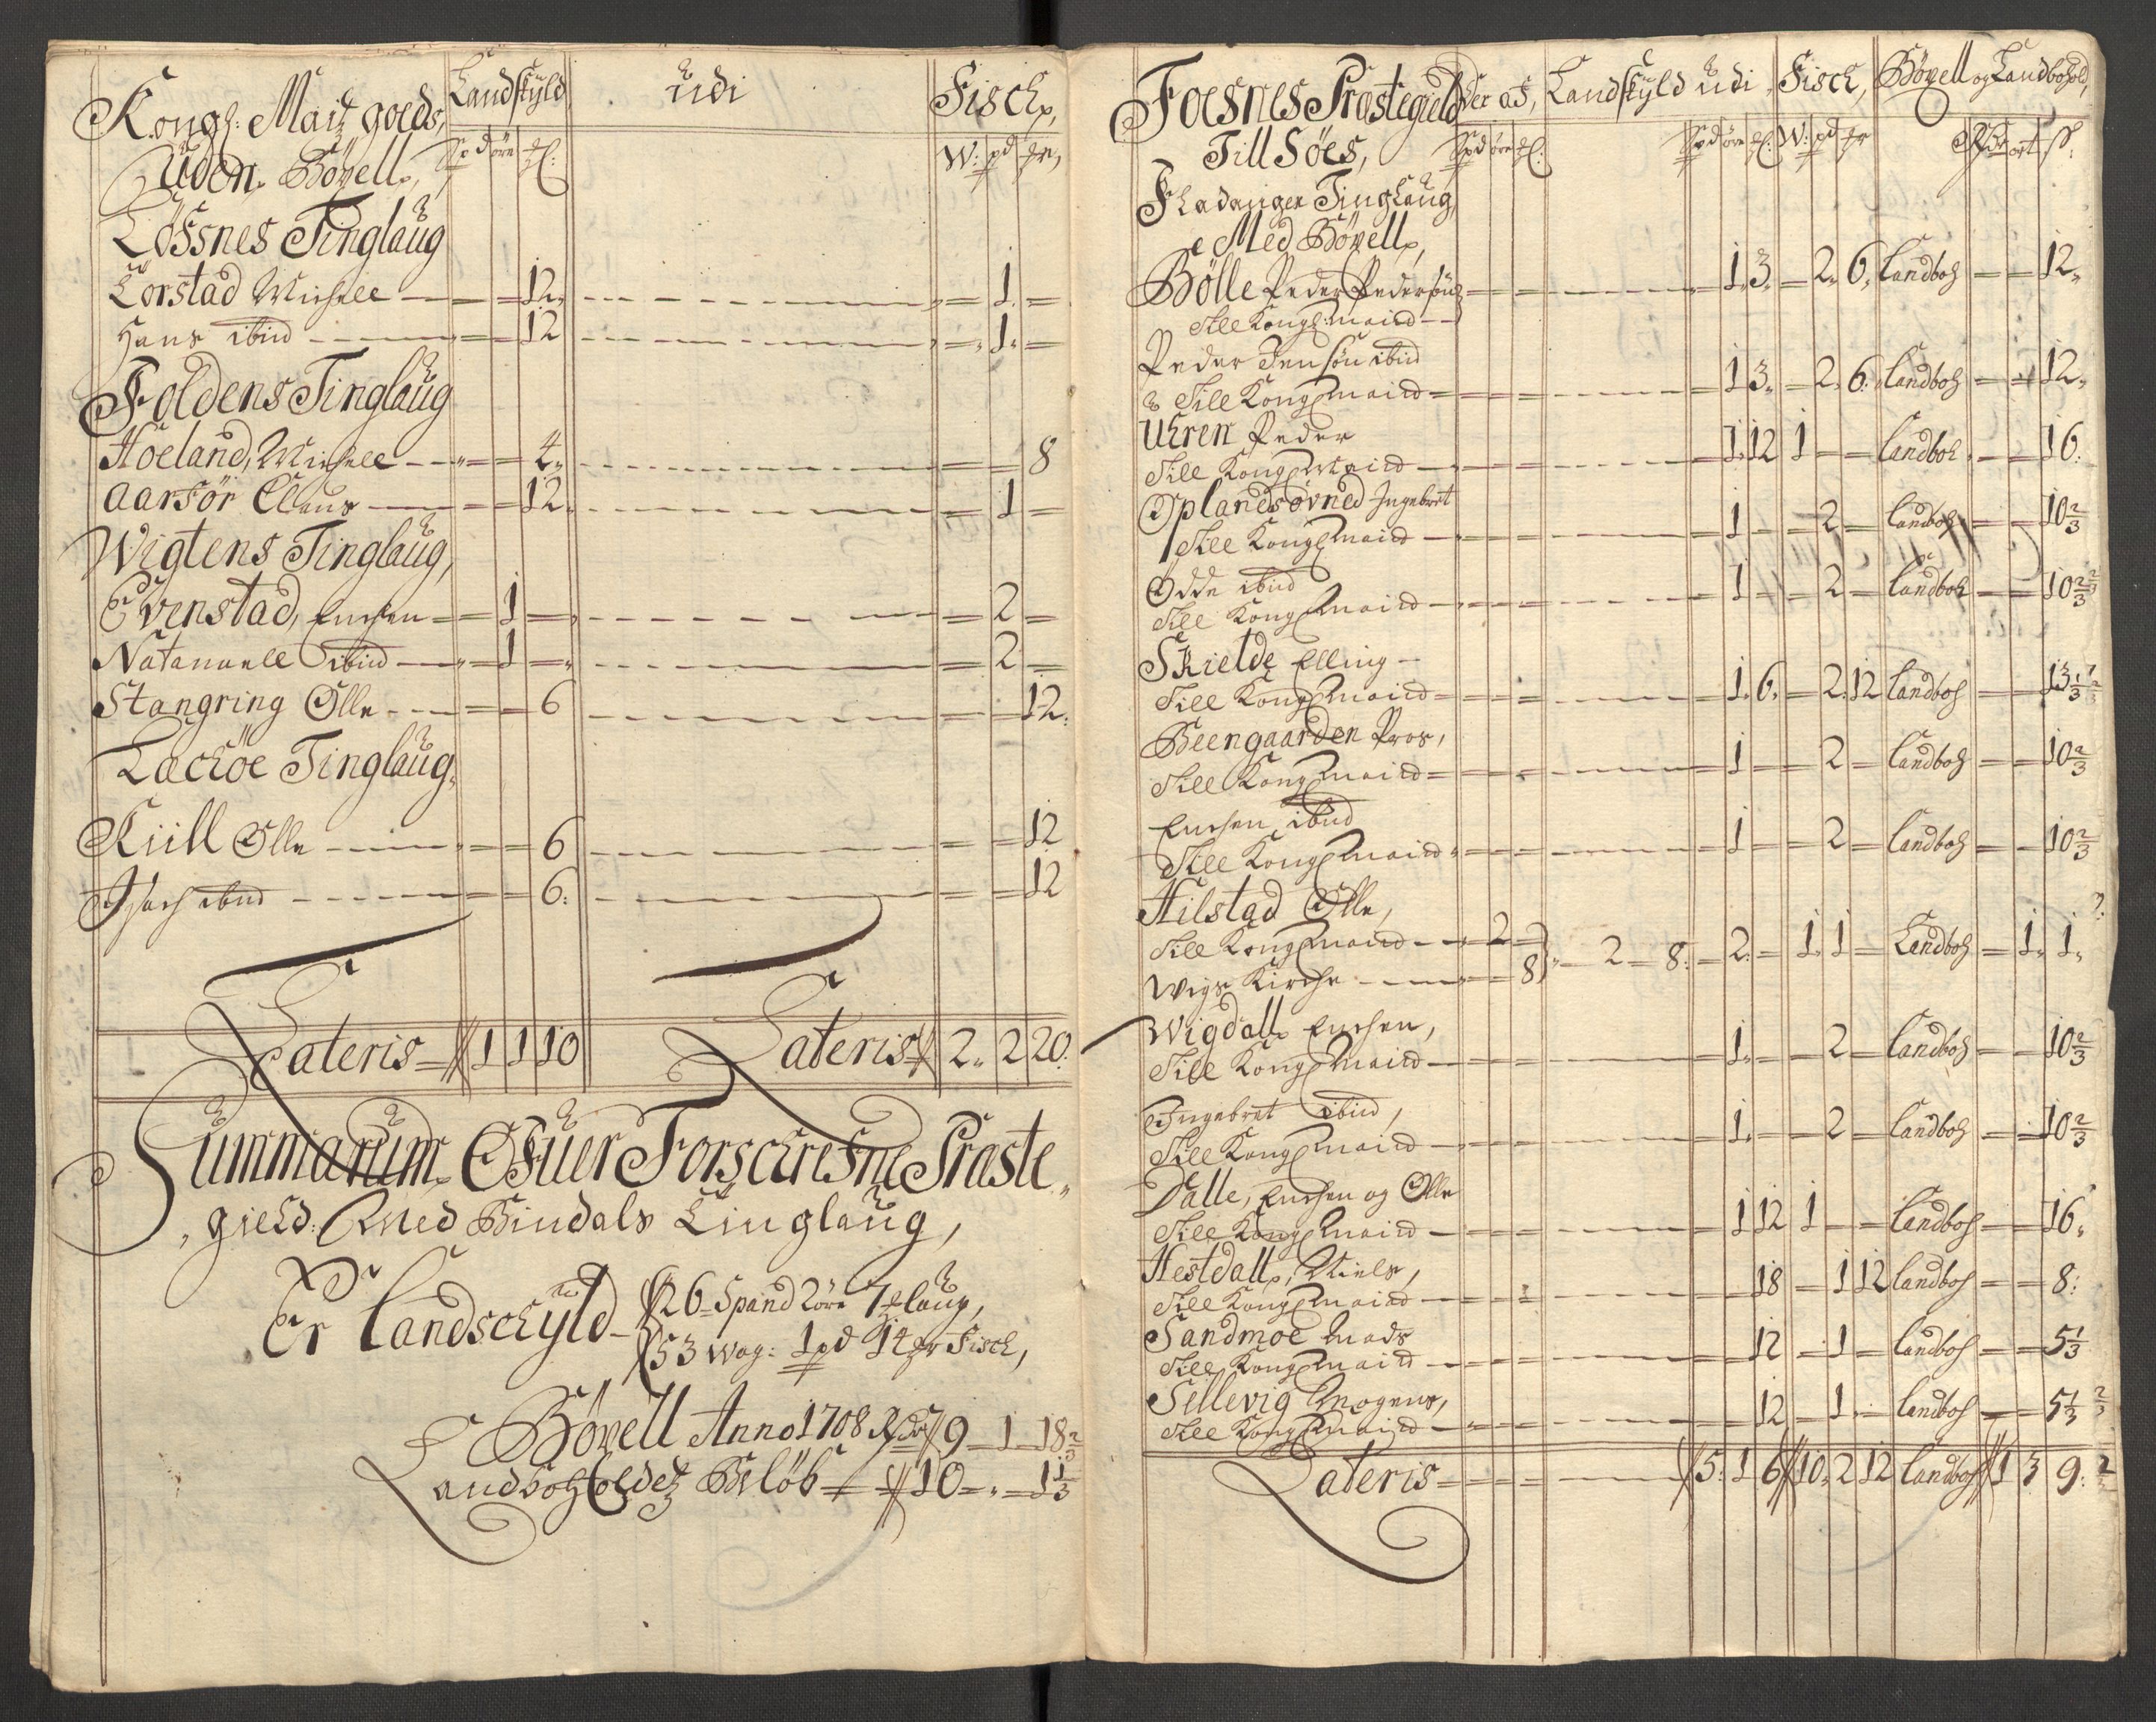 Kongl: Maitz goeds, Landskyld udi Fisch,
Uden Böxell, Spd öre W: pd
Lössnes Tinglaug
Lorstad Michell — — 12 — 1 —
Hans ibid — — 12 — 1 —
Foldens Tinglaug
Hoeland, Michell — — 4 — — 8
Aarför Claus — — 12 — 1 —
Wigtens Tinglaug,
Evenstad, Enchen — 1 — — 2 —
Natanaell ibid — 1 — — 2 —
Stangring Olle — — 6 — — 12
Læchöe Tinglaug
Kiill Olle — — 6 — — 12
Isach ibid — — 6 — — 12
Lateris 1 1 10 Lateris 2 2 20
Summarum Ofuer Forschrefne Præste
gield Med Bindals Tinglaug,
Er Landschyld 26 Spand 2 öre 7 laug,
53 wog: 1 pd 14 Fisch,
Böxell Anno 1708 79 — 1 — 18 2/3
Landboholdet Beløb 10 — 1 1/3
Foesnes Præstegield Landskyld udi Fisch, Böxell og Landbohold,
Till Söes, Spd öre Spd öre W: pd ort s:
Fladanger Tinglaug
Med Böxell,
Bölle Peder Pedersön — 1 3 — 2 6 Landboh — — 12
Till Kongl: Maitd
Peder Jensön ibid
Till Kongl Maitd — 1 3 — 2 6 Landboh — — 12
Uhren Peder
Till Kongl Maitd — 1 12 1 — — Landboh — — 16
Oplandsövned Ingebret
Till Kongl Maitd — 1 — — 2 — Landboh — — 10 2/3
Odde ibid
Till Kongl Maitd — 1 — — 2 — Landboh — — 10 2/3
Skielde Elling
Till Kongl Maitd — 1 6 — 2 12 Landboh — — 13 1/3
Beengaarden Pros,
Till Kongl Maitd — 1 — — 2 — Landboh — — 10 2/3
Enchen ibid
Till Kongl Maitd — 1 — — 2 — Landboh — — 10 2/3
Hilstad Olle,
Till Kongl Maitd — 2 — 2 — 8 — 2 — 1 1 — Landboh — 1 1
Wigs Kirche — — 8
Wigdall Enchen,
Till Kongl Maitd — 1 — — 2 — Landboh — — 10 2/3
Ingebret ibid,
Till Kongl Maitd — 1 — — 2 — Landboh — — 10 2/3
Dalle, Enchen og Olle
Till Kongl Maitd — 1 12 1 — — Landboh — — 16
Hestdall, Niels,
Till Kongl Maitd — 18 — 1 12 Landboh — — 8
Sandmoe Mads
Till Kongl Maitd — 12 — 1 — Landboh — — 5 1/3
Sellevig Mogens,
Till Kongl Maitd — 12 — 1 — Landboh — — 5 1/3
Lateris — 5 1 6 10 2 12 Landboh 1 3 9